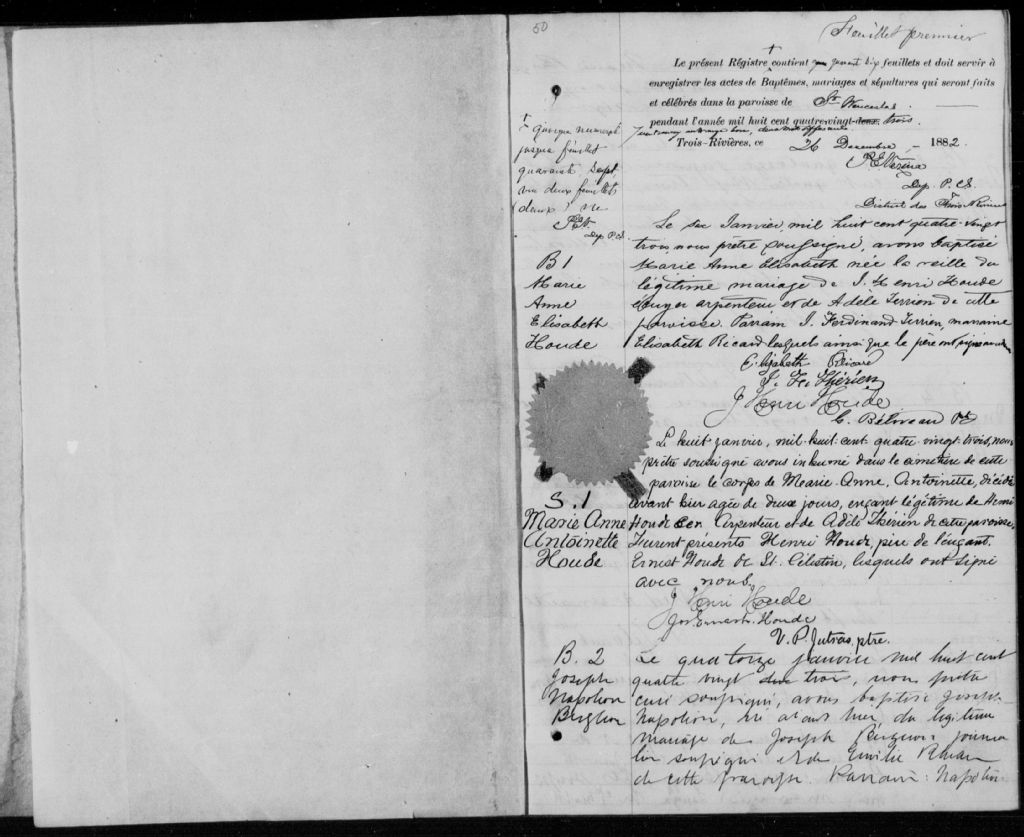 50
Feuillet premier
Le présent Régistre contient quarante six feuillets et doit servir à
enregistrer les actes de Baptêmes, mariages et sépultures qui seront faits
et célébrés dans la paroisse de St Wenceslas
pendant l'année mil huit cent quatre-vingt-deux. trois.
Trois-Rivières, ce 26 Decembre 1882.
Dep. P.C.S.
District des Trois-Rivières
jusqu'a feuillet
quarante sept,
deux feuillets
(deux)
Dep. P.C.S.
B 1
Marie
Anne
Elisabeth
Houde
Le six Janvier, mil huit cent quatre-vingt
trois, nous prêtre soussigné, avons baptisé
Marie Anne Elisabeth née la veille du
légitime mariage de J. Henri Houde
écuyer arpenteur et de Adèle Terrien de cette
paroisse. Parrain J. Ferdinand Terrien, marraine
Elisabeth Ricard lesquels ainsi que le père ont signé
Elizabeth Ricard
J. F. Thérien
J Henri Houde
C. Béliveau Ptre
S. 1
Marie Anne
Antoinette
Houde
Le huit janvier, mil-huit-cent quatre-vingt-trois, nous
prêtre soussigné avons inhumé dans le cimetière de cette
paroisse le corps de Mearie-Anne, Antoinette, décédée
avant hier agée de deux jours, enfant légitime de Henri
Houde Arpenteur et de Adèle Thérien de cette paroisse.
Furent présents Henri Houde, père de l'enfant.
Ernest Houde de St. Célestin, lesquels ont signé
avec nous.
J Henri Houde
Jos Ernest Houde
V. P. Jutras, ptre.
B. 2
Joseph
Napoléon
Le quatorze janvier mil huit cent
quatre vingt deux trois, nous prêtre
curé soussigné, avons baptisé Joseph
Napoléon, né avant hier, du légitime
mariage de Joseph Bergeron journa
lier soussigné et de Emilie
de cette paroisse. Parrain: Napoléon